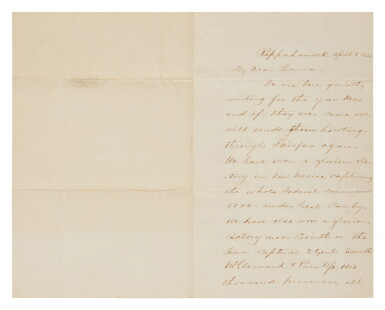 Rappahannock April 8
My Dear
We are here quietly
waiting for the yankees
and if they ever come we
will send them howling
through Fairfax again
We have won a glorious vic-
tory in New Mexico capturing
the whole Federal command
6000 - under Genl Canby.
We have also won a glorious
victory near Corinth on the
captured 3 Genls Smith
McClernand & Prentiss,
thousand prisoners, all